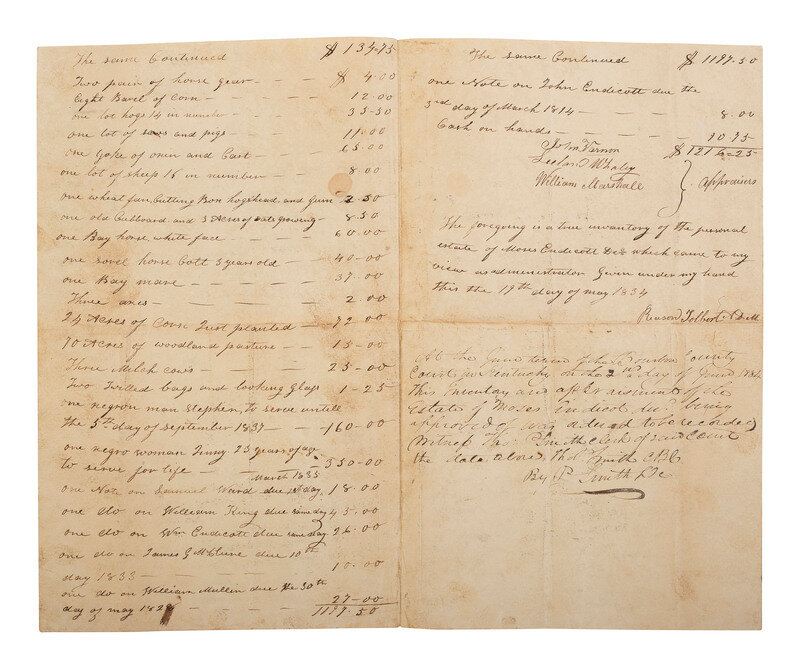 The same Continued $ 134-75
Two pair of horse gear - - - $ 4-00
Eight Barel of Corn - - - 12-00
one lot hogs 14 in number - - 35-50
one lot of sows and pigs - - 11-00
one Yoke of oxen and Cart - - 65-00
one lot of sheep 16 in number - - 8-00
one wheat fan, Cutting Box hogshead and 2-50
one old Cutboard and 3 Acres of oats growing - 8-50
one Bay horse, white face - - - 60-00
one sorel horse Colt 3 years old - 40-00
one Bay mare - - - 37-00
Three axes - - - - 2-00
24 Acres of Corn Just planted - 72-00
10 Acres of woodland pasture - - 15-00
Three Milch cows - - - 25-00
Two Twilled bags and looking Glass 1-25
one negron man Stephen, to serve untill
the 5th day of September 1837 - 160-00
one negro woman 23 years of age
to serve for life - - - 550-00
one Note on Samuel Ward due 1st day March 1835 18-00
one do on William King due same day 45-00
one do on Wm Endicott due same day 26-00
one do on James G McClure due 10th
day 1833 - - - - 10-00
one do on William Mullin due the 30th
day of may 1828 - - - 27-00
1197-50
The same Continued $ 1197-50
one Note on John Endicott due the
3rd day of March 1814 - - - 8-00
Cash on hands - - - 10 75
$ 1216-25
John Vernon
William Marshall
Appraisers
The foregoing is a true inventory of the personal
estate of Moses Endicott Decd which came to my
view as administrator Given under my hand
this the 19th day of may 1834
Reason Tolbert Adm
At the June term of the Bourbon County
Court in Kentucky on the 2nd day of June 1834
This Inventory and appraisment of the
Estate of Moses Endicot dec. being
approved of was ordered to be recorded
Witness Tho. P. Smith clerk of said Court
the date above Tho. P. Smith CBC
By P Smith DC